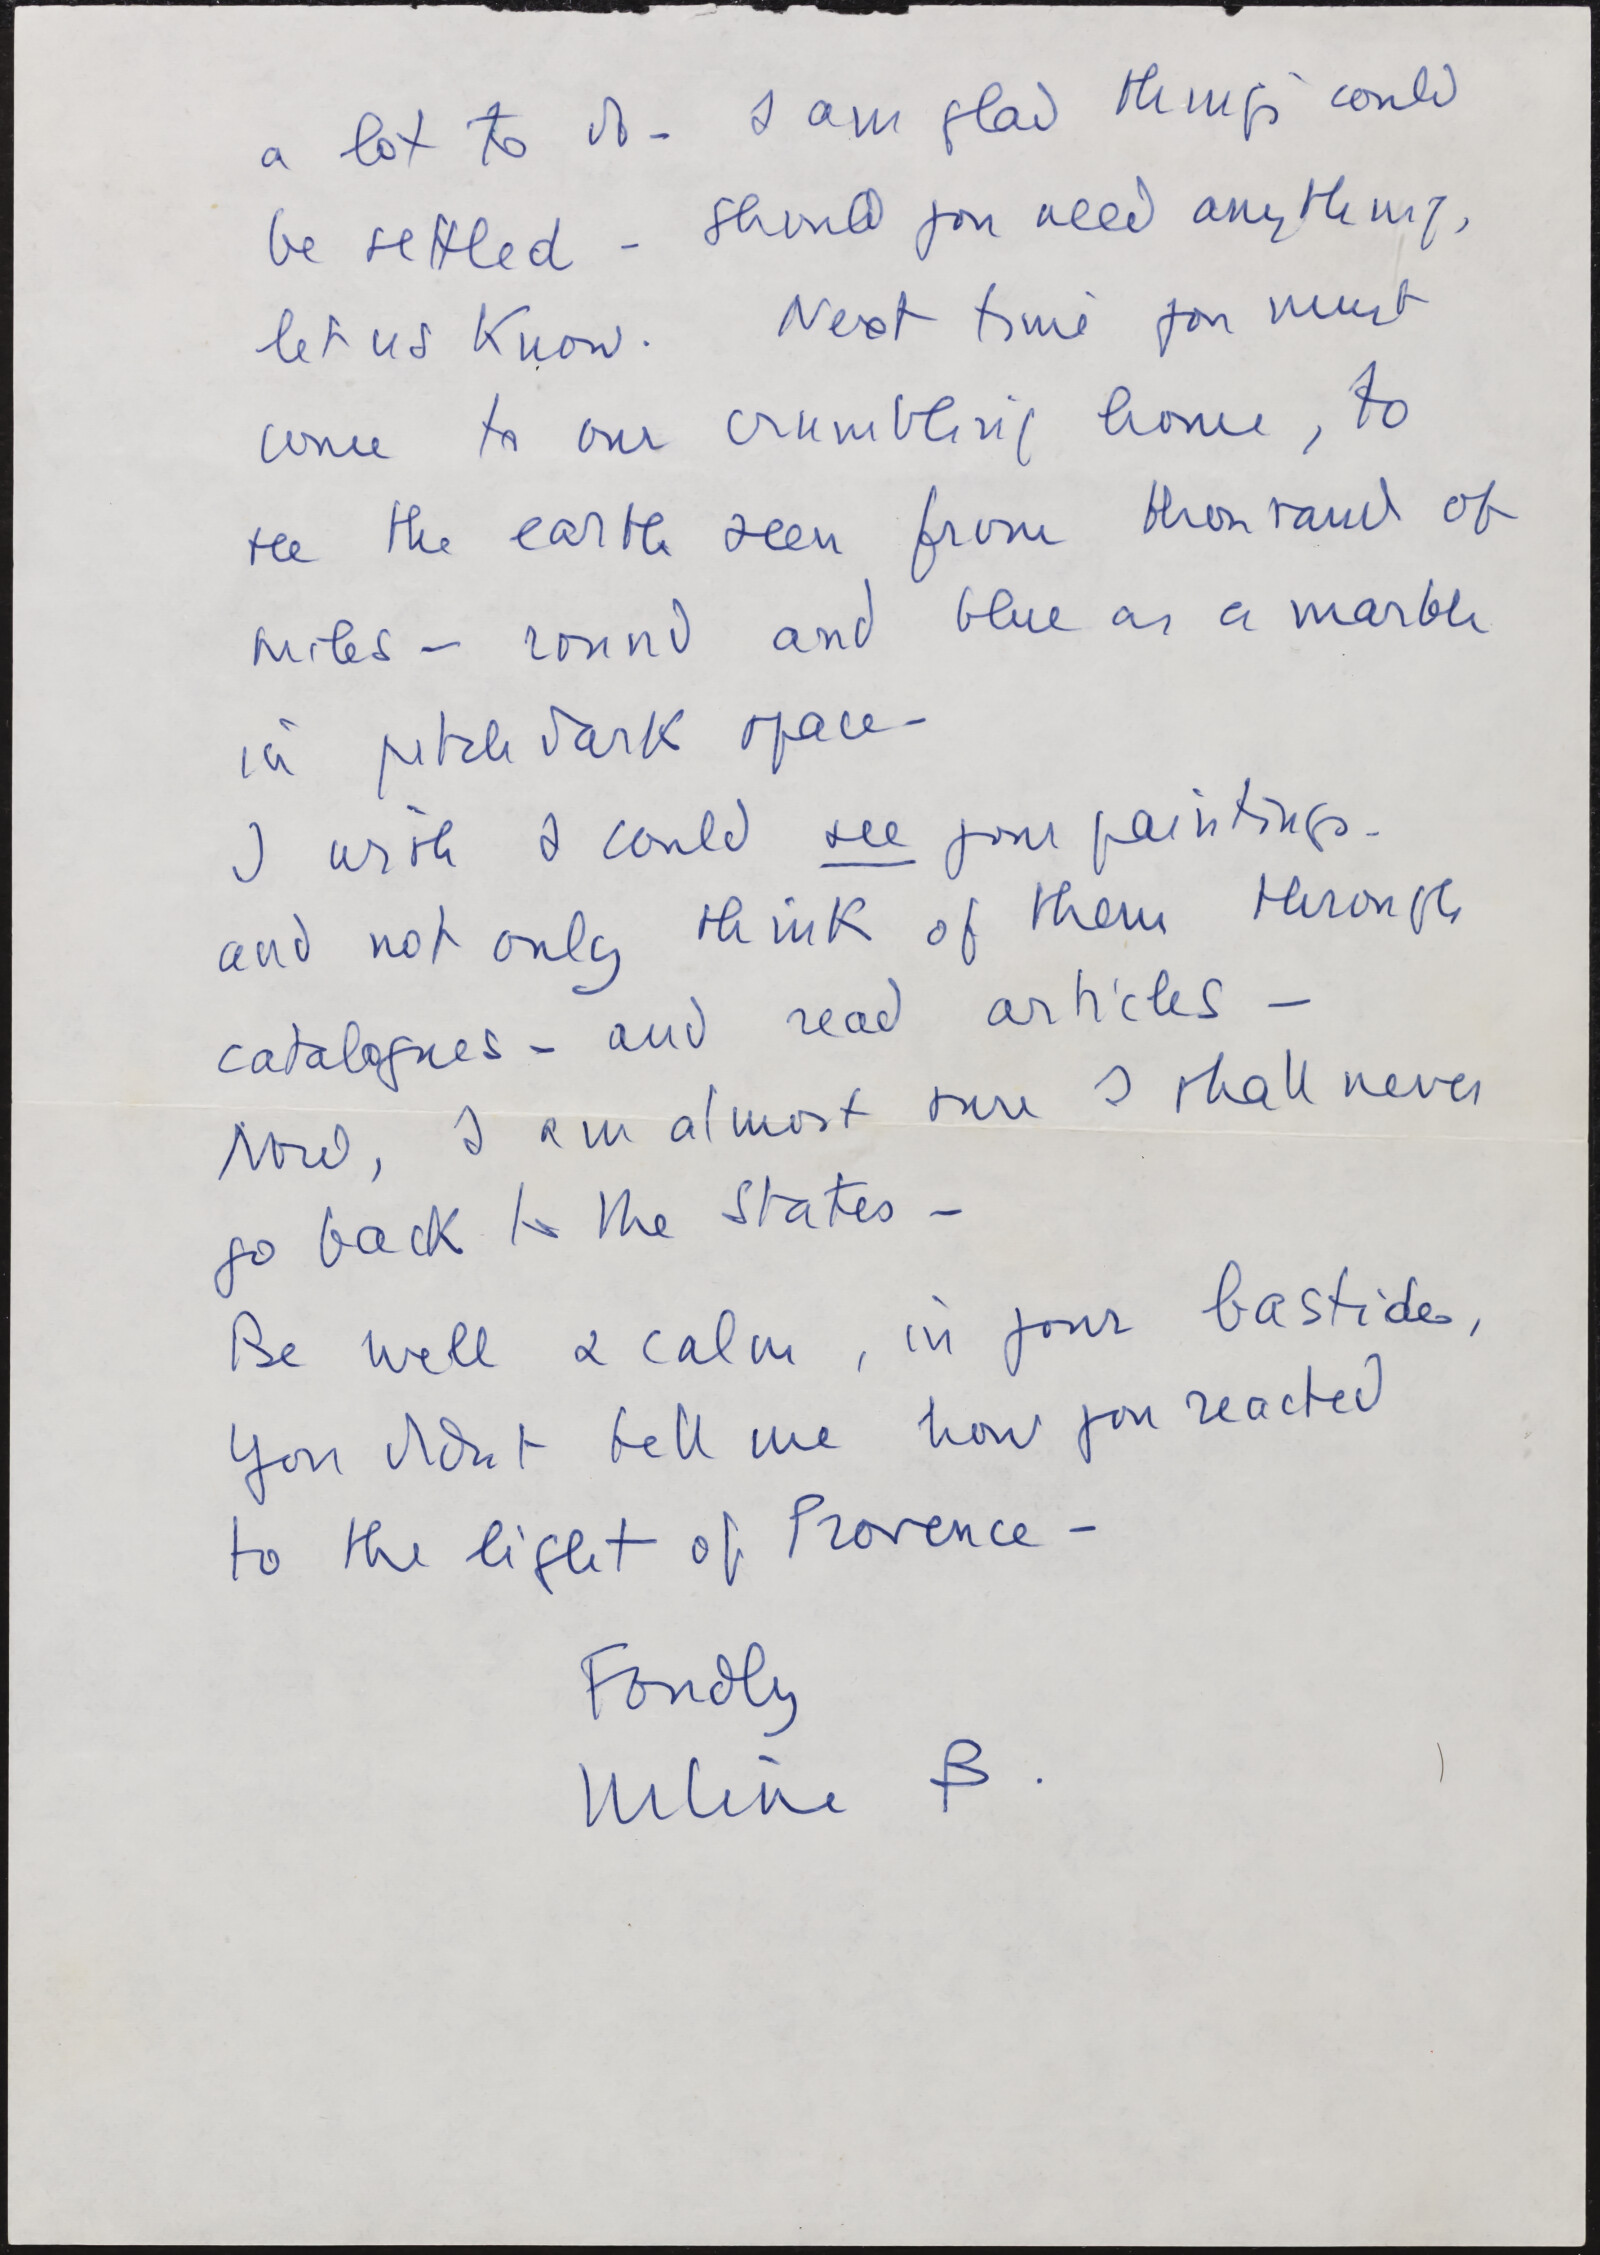 a lot to do - I am glad things could
be settled - should you need anything,
let us know. Next time you must
come to our crumbling home, to
see the earth seen from thousand of
miles - round and blue as a marble
in pitch dark space -
I wish I could see your paintings -
and not only think of them through
catalogues - and read articles -
Now, I am almost sure I shall never
go back to the States -
Be well & calm, in your bastides,
You didn't tell me how you reacted
to the light of Provence -
Fondly
B.